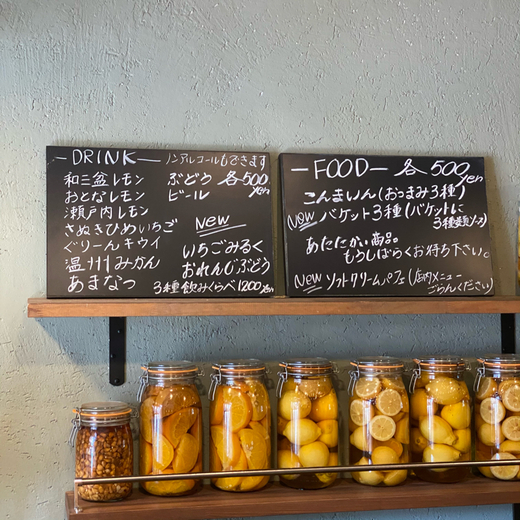 DRINK ノンアルコールもできます
和三盆レモン
おとなレモン
瀬戸内レモン
さぬきひめいちご
ぐりーんキウイ
温州みかん
あまなつ
ぶどう
ビール
各500yen
New
いちごみるく
おれんじぶどう
3種飲みくらべ1200yen
FOOD 各500yen
こんまいん(おつまみ3種)
New バケット3種(バケットに
3種類ソース)
あたたかい商品。
もうしばらくお待ち下さい。
New ソフトクリームパフェ(店内メニュー
ごらんください)